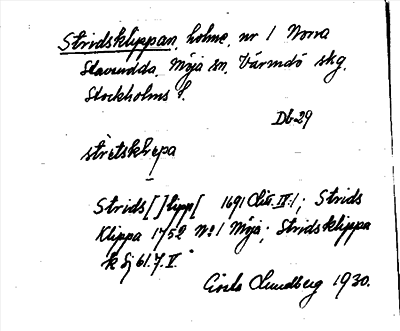 Stridsklippan, holme, nr 1 Norra
Stavsudda, Möja sn, Värmdö skg,
Stockholms l.
Db29
strìtsklıpa
Strids[]klipp[ 1691 Litt. IV:1; Strids
Klippa 1752 No 1 Möja; Stridsklippa
Gösta Lundberg 1930.